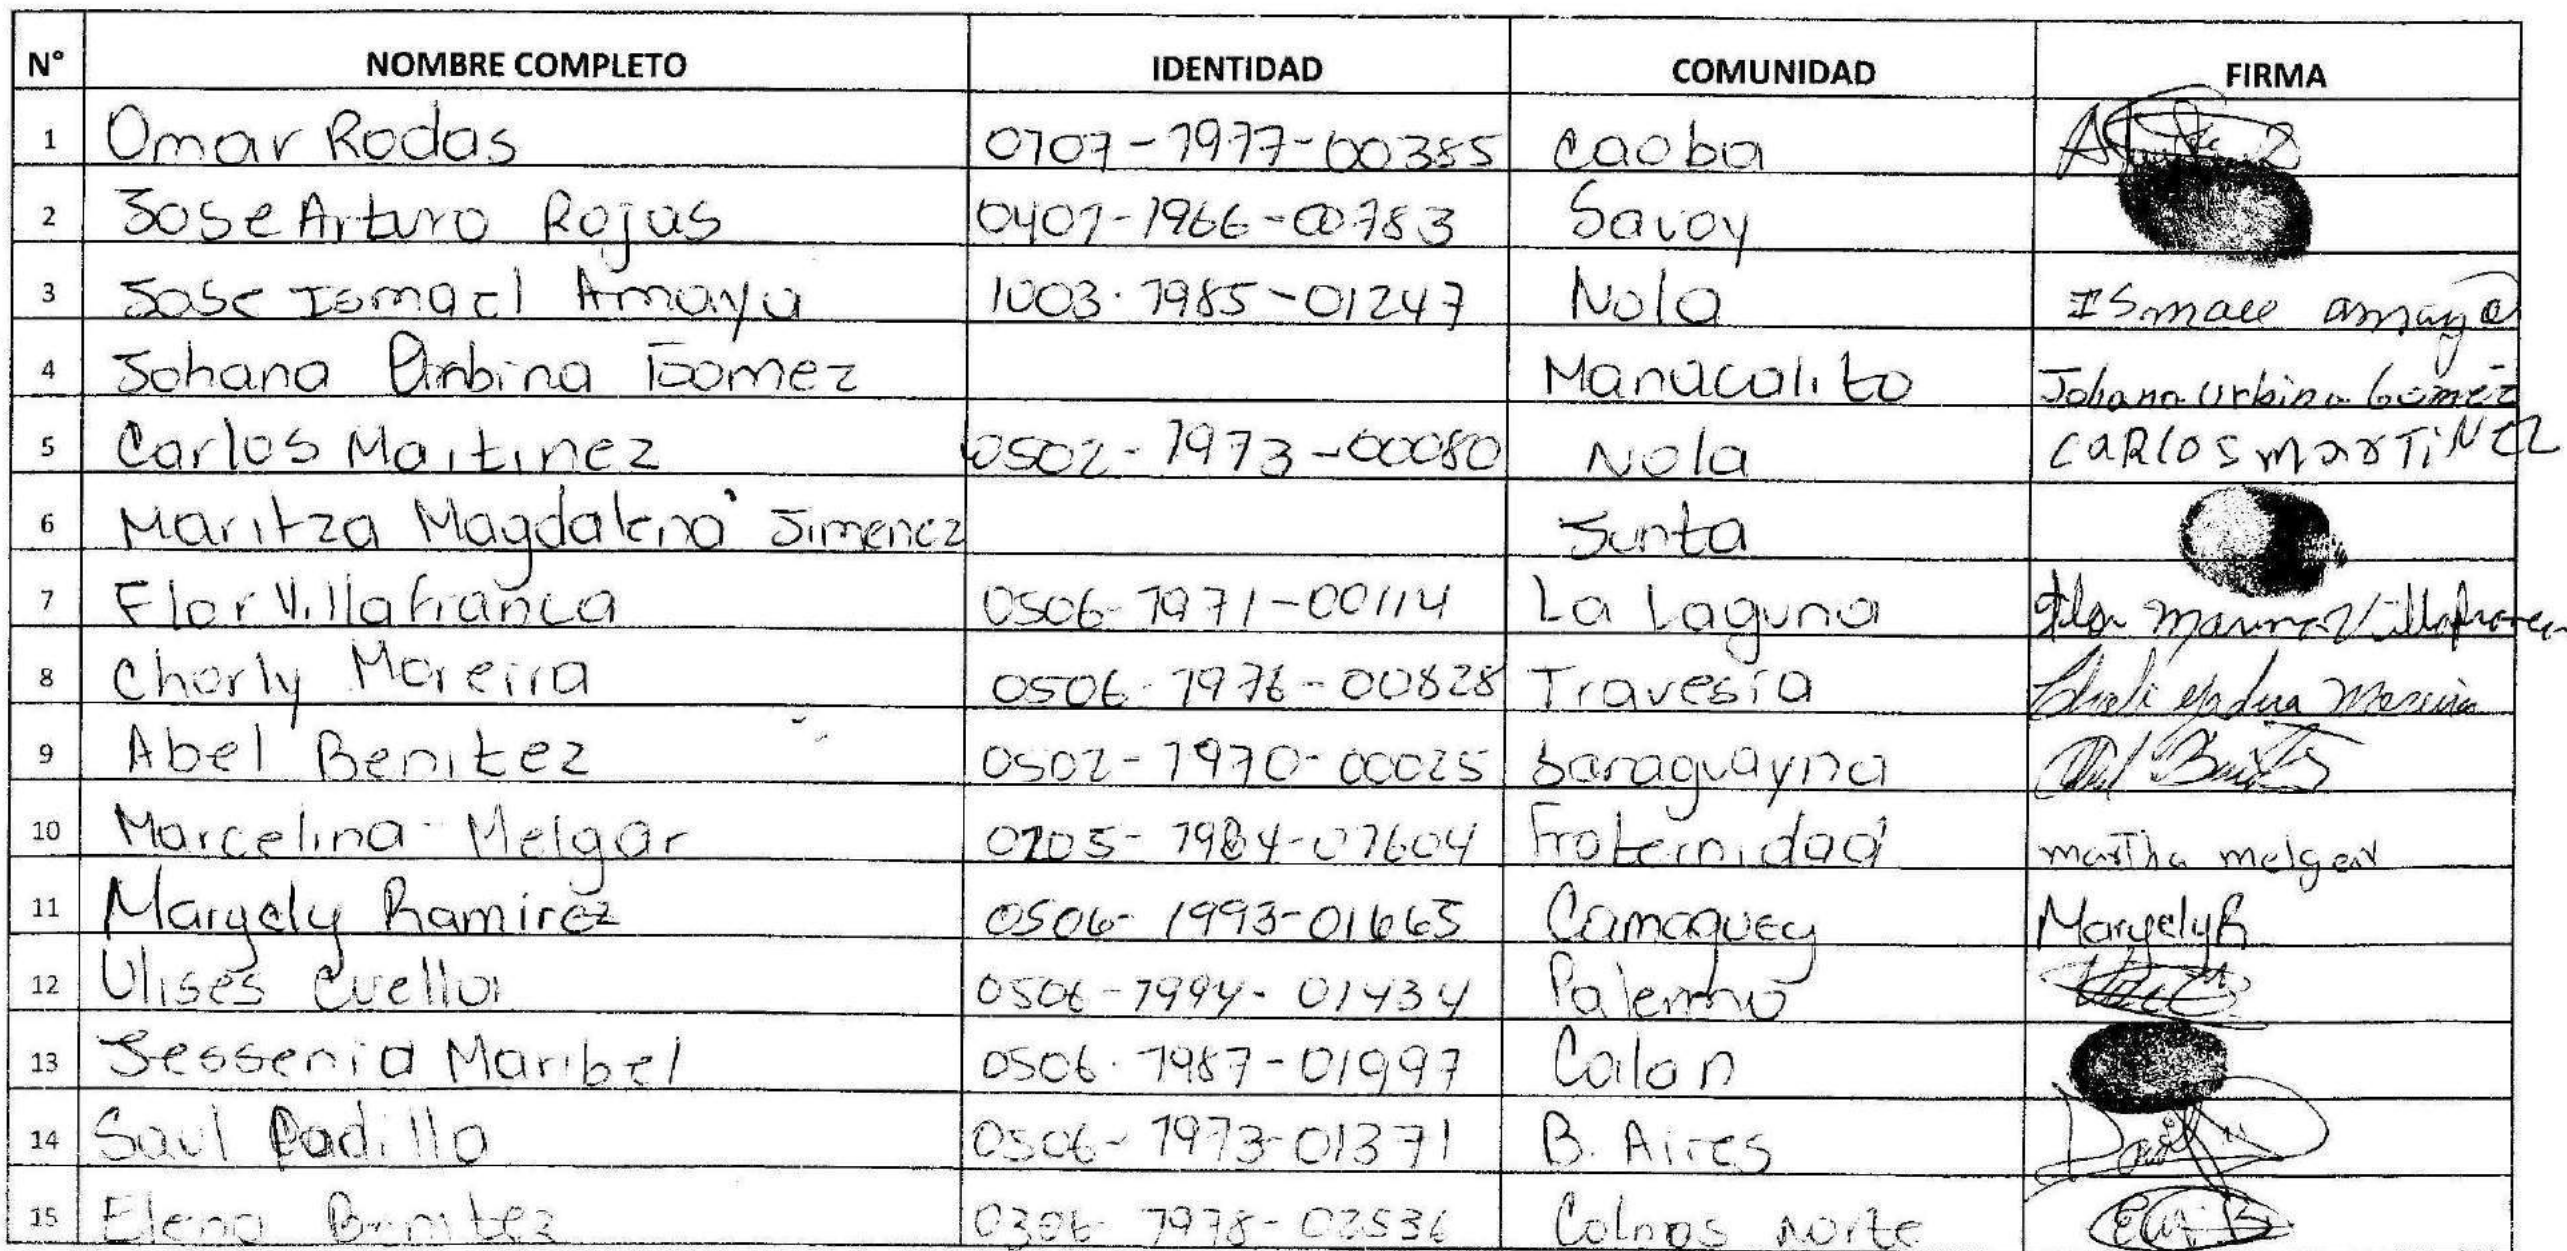 N° NOMBRE COMPLETO IDENTIDAD COMUNIDAD FIRMA
1 Omar Rodas 0707-1977-00385 Caoba
2 Jose Arturo Rojas 0401-1966-00783 Savoy
3 Jose Ismael Amaya 1003-1985-01247 Nola Ismael amaya
4 Johana Urbina Gomez Manacalito Johana Urbina Gomez
5 Carlos Martinez 0502-1973-00080 Nola CARlOS MARTiNEZ
6 Maritza Magdalena Jimenez Junta
7 Flor Villafranca 0506-1971-00114 La Laguna Flor Marina Villafranca
8 Charly Moreira 0506-1976-00828 Travesia Moreira
9 Abel Benitez 0502-1970-00025 Saraguayna Abel Benitez
10 Marcelina Melgar 1984-01604 Fraternidad martha melgar
11 Margely Ramirez 0506-1993-01663 Camaguey Margely R
12 Ulises Cuellar 0506-1994-01434 Palermo
13 Jessenia Maribel 0506-1987-01997 Calan
14 Saul Padilla 0506-1973-01371 B. Aires
15 Elena Benitez 1978-02536 Norte